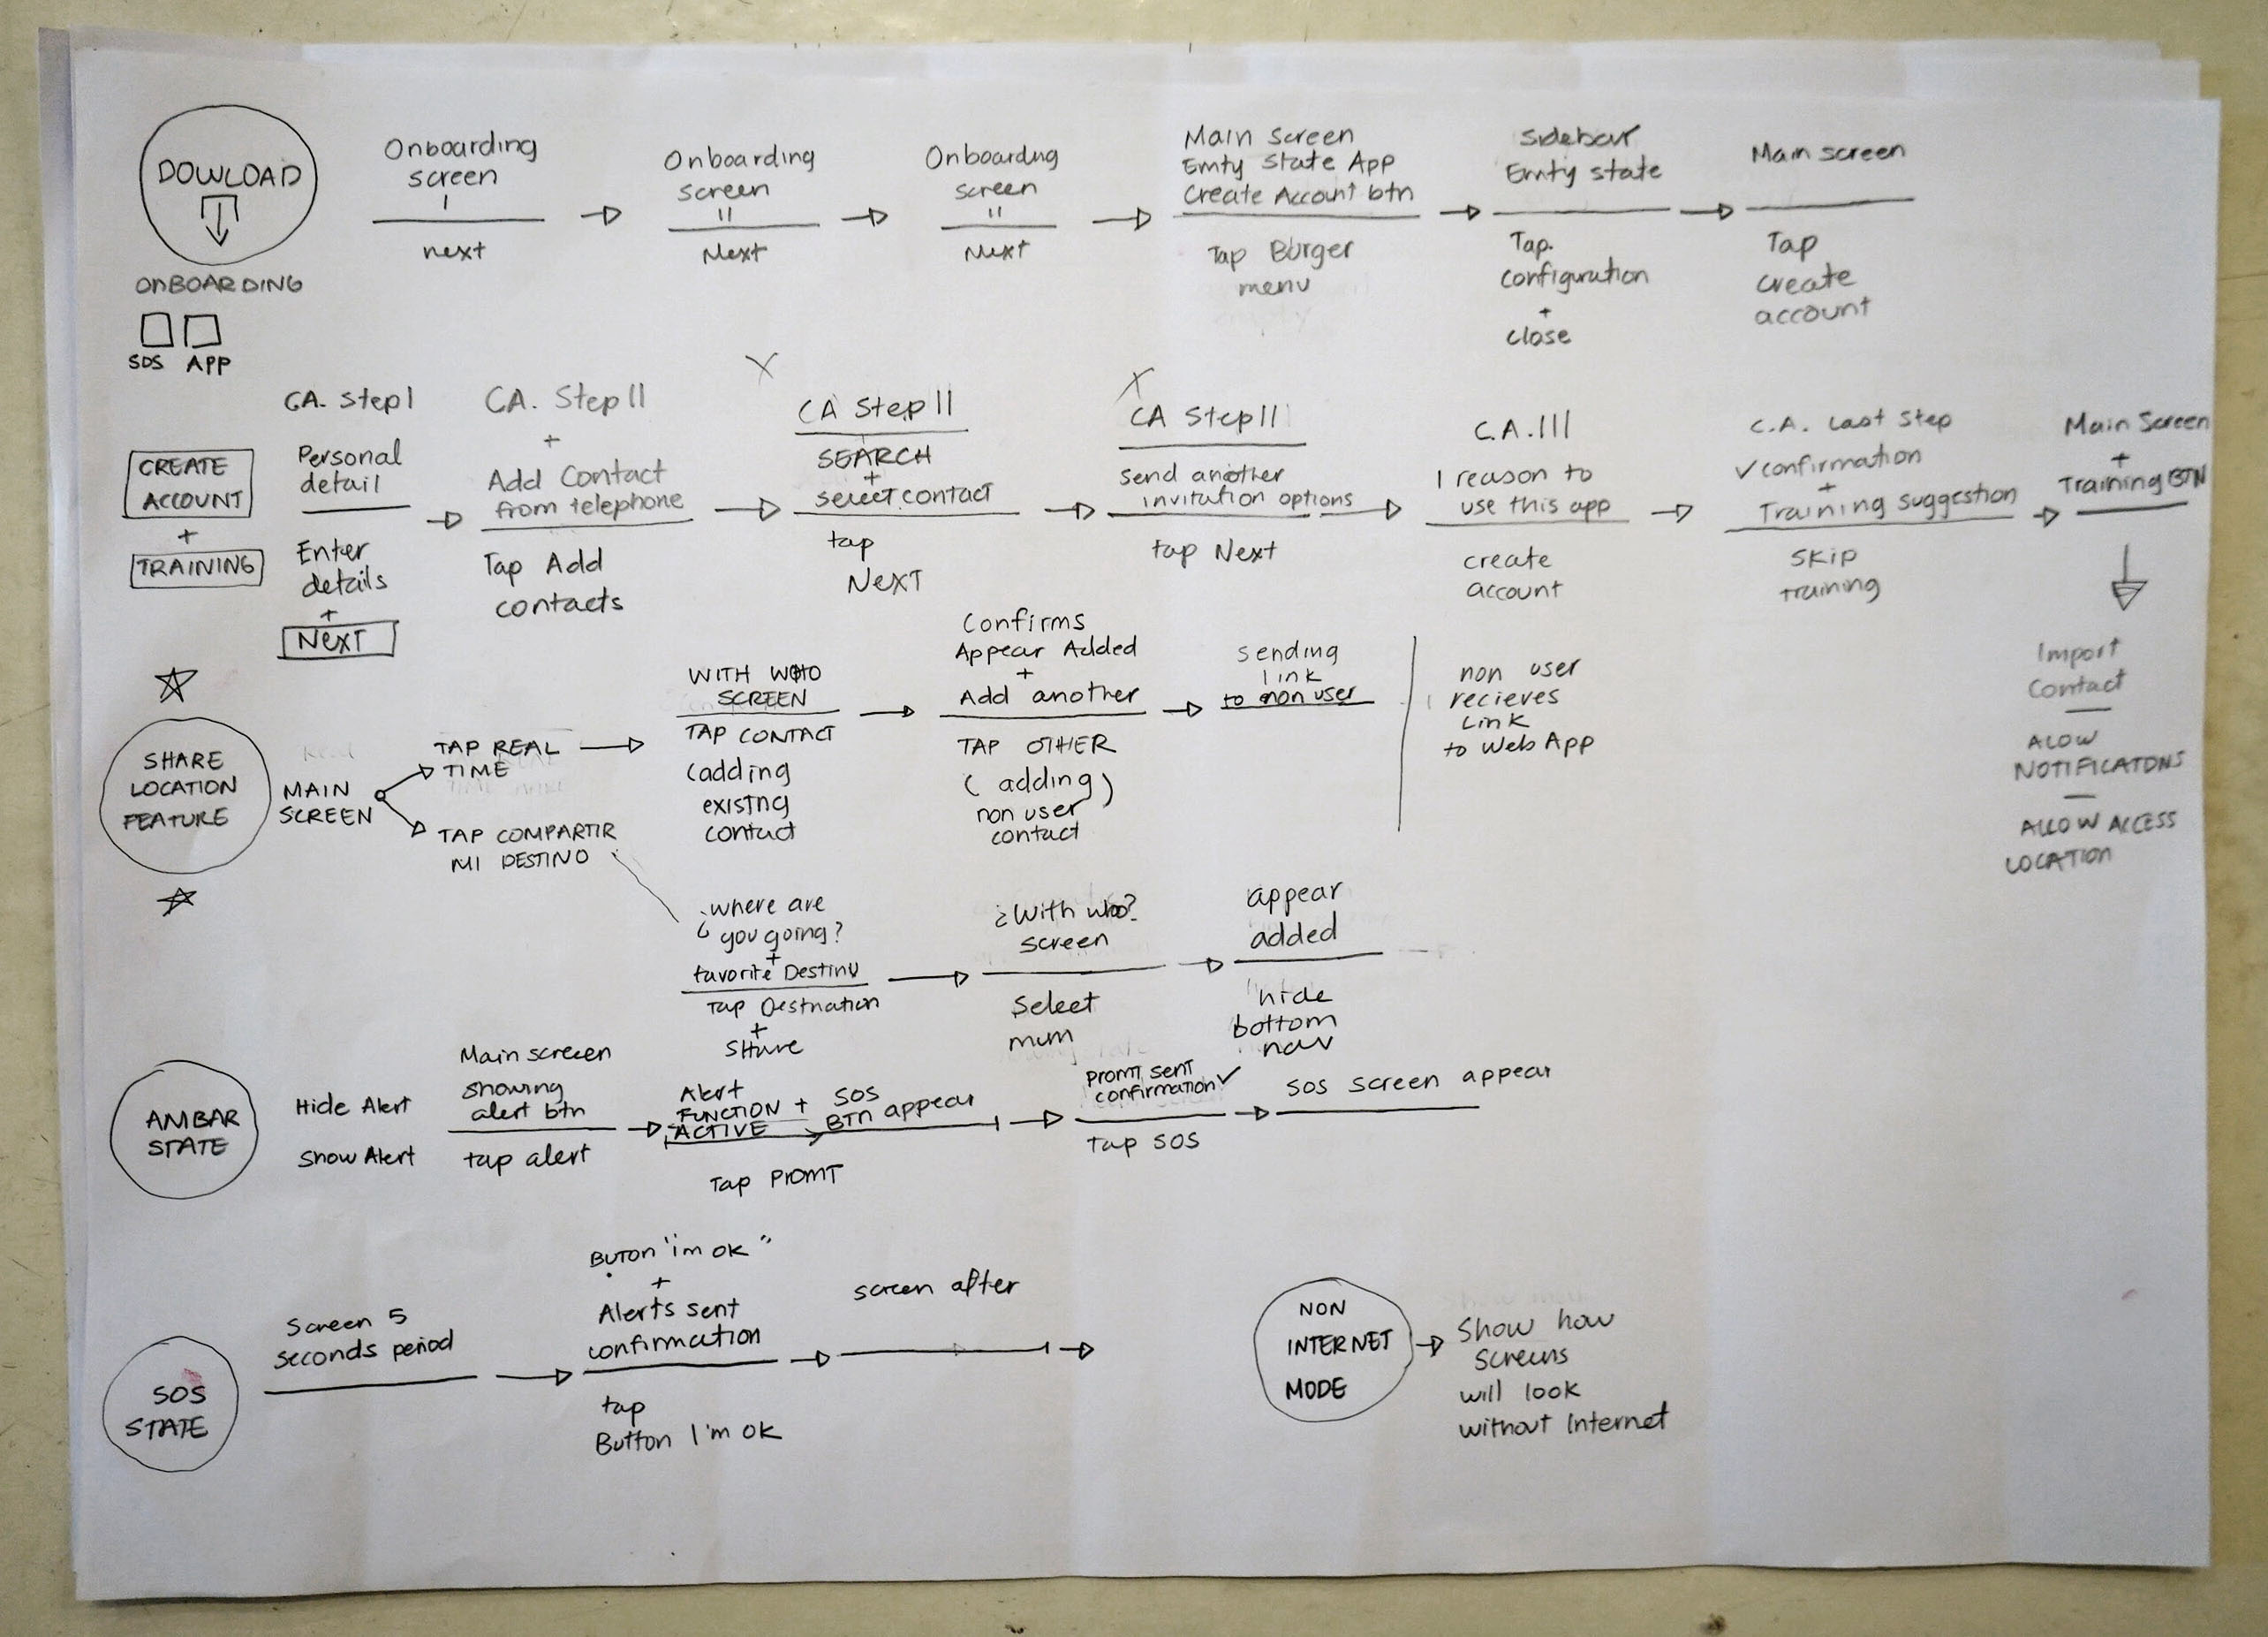 DOWLOAD
ONBOARDING
SOS APP
Onboarding
screen
I
next
Onboarding
screen
II
Next
Onboardng
screen
II
Next
Main Screen
Emty State App
Create Account btn
Tap Burger
menu
Sidebar
Emty state
Tap
configuration
+
close
Main screen
Tap
create
account
CREATE
ACCOUNT
+
TRAINING
CA. Step I
Personal
detail
Enter
details
+
NEXT
CA. Step II
+
Add Contact
from telephone
Tap Add
contacts
X
CA Step II
SEARCH
+
select contact
tap
NEXT
X
CA Step II
send another
invitation options
tap Next
C.A. III
1 reason to
use this app
create
account
C.A. Last Step
✓ confirmation
+
Training suggestion
SKIP
training
Main Screen
+
Training BTN
Import
Contact
—
ALOW
NOTIFICATONS
—
ALLOW ACCESS
LOCATION
SHARE
LOCATION
FEATURE
MAIN
SCREEN
TAP REAL
TIME
TAP COMPARTIR
MI DESTINO
WITH WHO
SCREEN
TAP CONTACT
(adding
existng
contact
Confirms
Appear Added
+
Add another
TAP OTHER
(adding)
non user
contact
sending
link
to non user
non user
recieves
Link
to Web App
¿where are
you going?
+
favorite Destiny
Tap Destnation
+
Share
¿With who?
screen
Select
mum
appear
added
hide
bottom
nav
AMBAR
STATE
Hide Alert
Show Alert
Main screen
showing
alert btn
tap alert
Alert
FUNCTION +
ACTIVE
SOS
BTN appear
Tap PROMT
PROMT SENT
confirmation ✓
Tap SOS
SOS screen appear
SOS
STATE
Screen 5
seconds period
BUTON "i'm OK"
+
Alerts sent
confirmation
tap
Button I'm OK
screen after
NON
INTERNET
MODE
Show how
screens
will look
without Internet